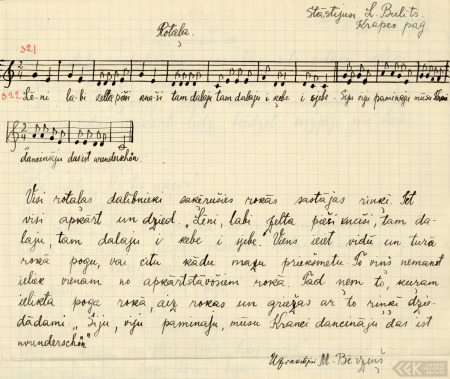 Stāstijusi L. Būlits.
Krapes pag
Rotaļa.
321
322 Lē-ni la-bi zelta pēši knaši tam dalaju tam dalaju i kebe i sjebe. Šiju viju paminaju mūsu
dancināju das ist wunderschön.
Visi rotaļas dalībnieki sakērušies rokās sastājas riņķī. Iet
visi apkārt un dzied "Lēni, labi zelta pieši knuši, tam da-
laju, tam dalaju i kebe i sjebe." Viens ieiet vidū un tura
rokā pogu, vai citu kādu mazu priekšmetu. To viņš nemanot
ieliek vienam no apkārtstāvošiem rokā. Tad ņem to, kuram
ielikta poga rokā, aiz rokas un griežas ar to riņķī dzie-
dādami: "Šiju, viju paminaju, mūsu Kranci dancināju das ist
wunderschön"
Uzrakstījis M. Bērziņš